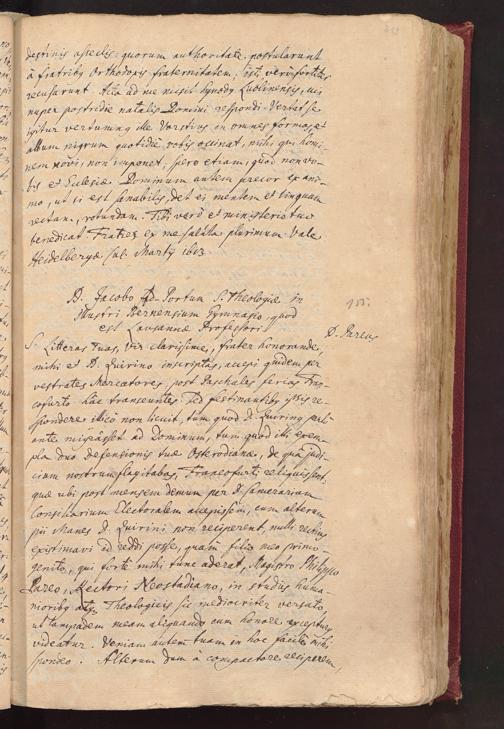 destinis asseclis: quorum authoritate postularunt
à fratribus Orthodoxis fraternitatem: isti verò fortiter
recusarunt. Acta ad me misit Synodus Lublinensis, cui
nuper postridie natalis Domini respondi. Vertat se
igitur vertumnus ille Vorstius in omnes formas, et
album nigrum quotidie vobis occinat, mihi, qui homi-
nem novi, non imponet, spero etiam, quòd non vo-
bis et Ecclesiæ. Dominum autem precor ex ani-
mo, ut si est sanabilis, det ei mentem et linguam
rectam, rotundam. Tibi verò et ministerio tuo
benedicat. Fratres ex me saluta plurimum. Vale
Heidelbergæ Cal. Martÿ 1613.
D. Jacobo Ad Portum S. Theologiæ in
Illustri Bernensium Gymnasio, quod
est Lausannæ Professori
155.
D. Pareus
S. Litteras tuas, Vir clarissime, frater honorande,
mihi et D. Quirino inscriptas, accepi quidem per
vestrates Mercatores, post Paschales ferias Fran-
cofurto hac transeuntes: sed festinantibus ipsis re-
spondere illicò non licuit, tum quod D. Quirinus paul-
ante migrasset ad Dominum, tum quod illi exem-
pla duo defensionis tuæ Osterodianæ, de quâ judi-
cium nostrum flagitabas, Francofurti reliquissent:
quæ ubi post mensem demum per D. Camerarium
Consiliarium Electoralem accepissem, cum alterum
pii Manes D. Quirini non reciperent, nulli rectius
existimavi id reddi posse, quàm filio meo primo-
genito, qui fortè mihi tunc aderat, Magistro Philippo
Pareo, Rectori Neostadiano, in studiis huma-
nioribus atque Theologicis sic mediocriter versato,
ut lampadem meam aliquando cum honore excepturus
videatur. Veniam autem tuam in hoc facilem mihi
spondeo. Alterum dum à compactore reciperem,